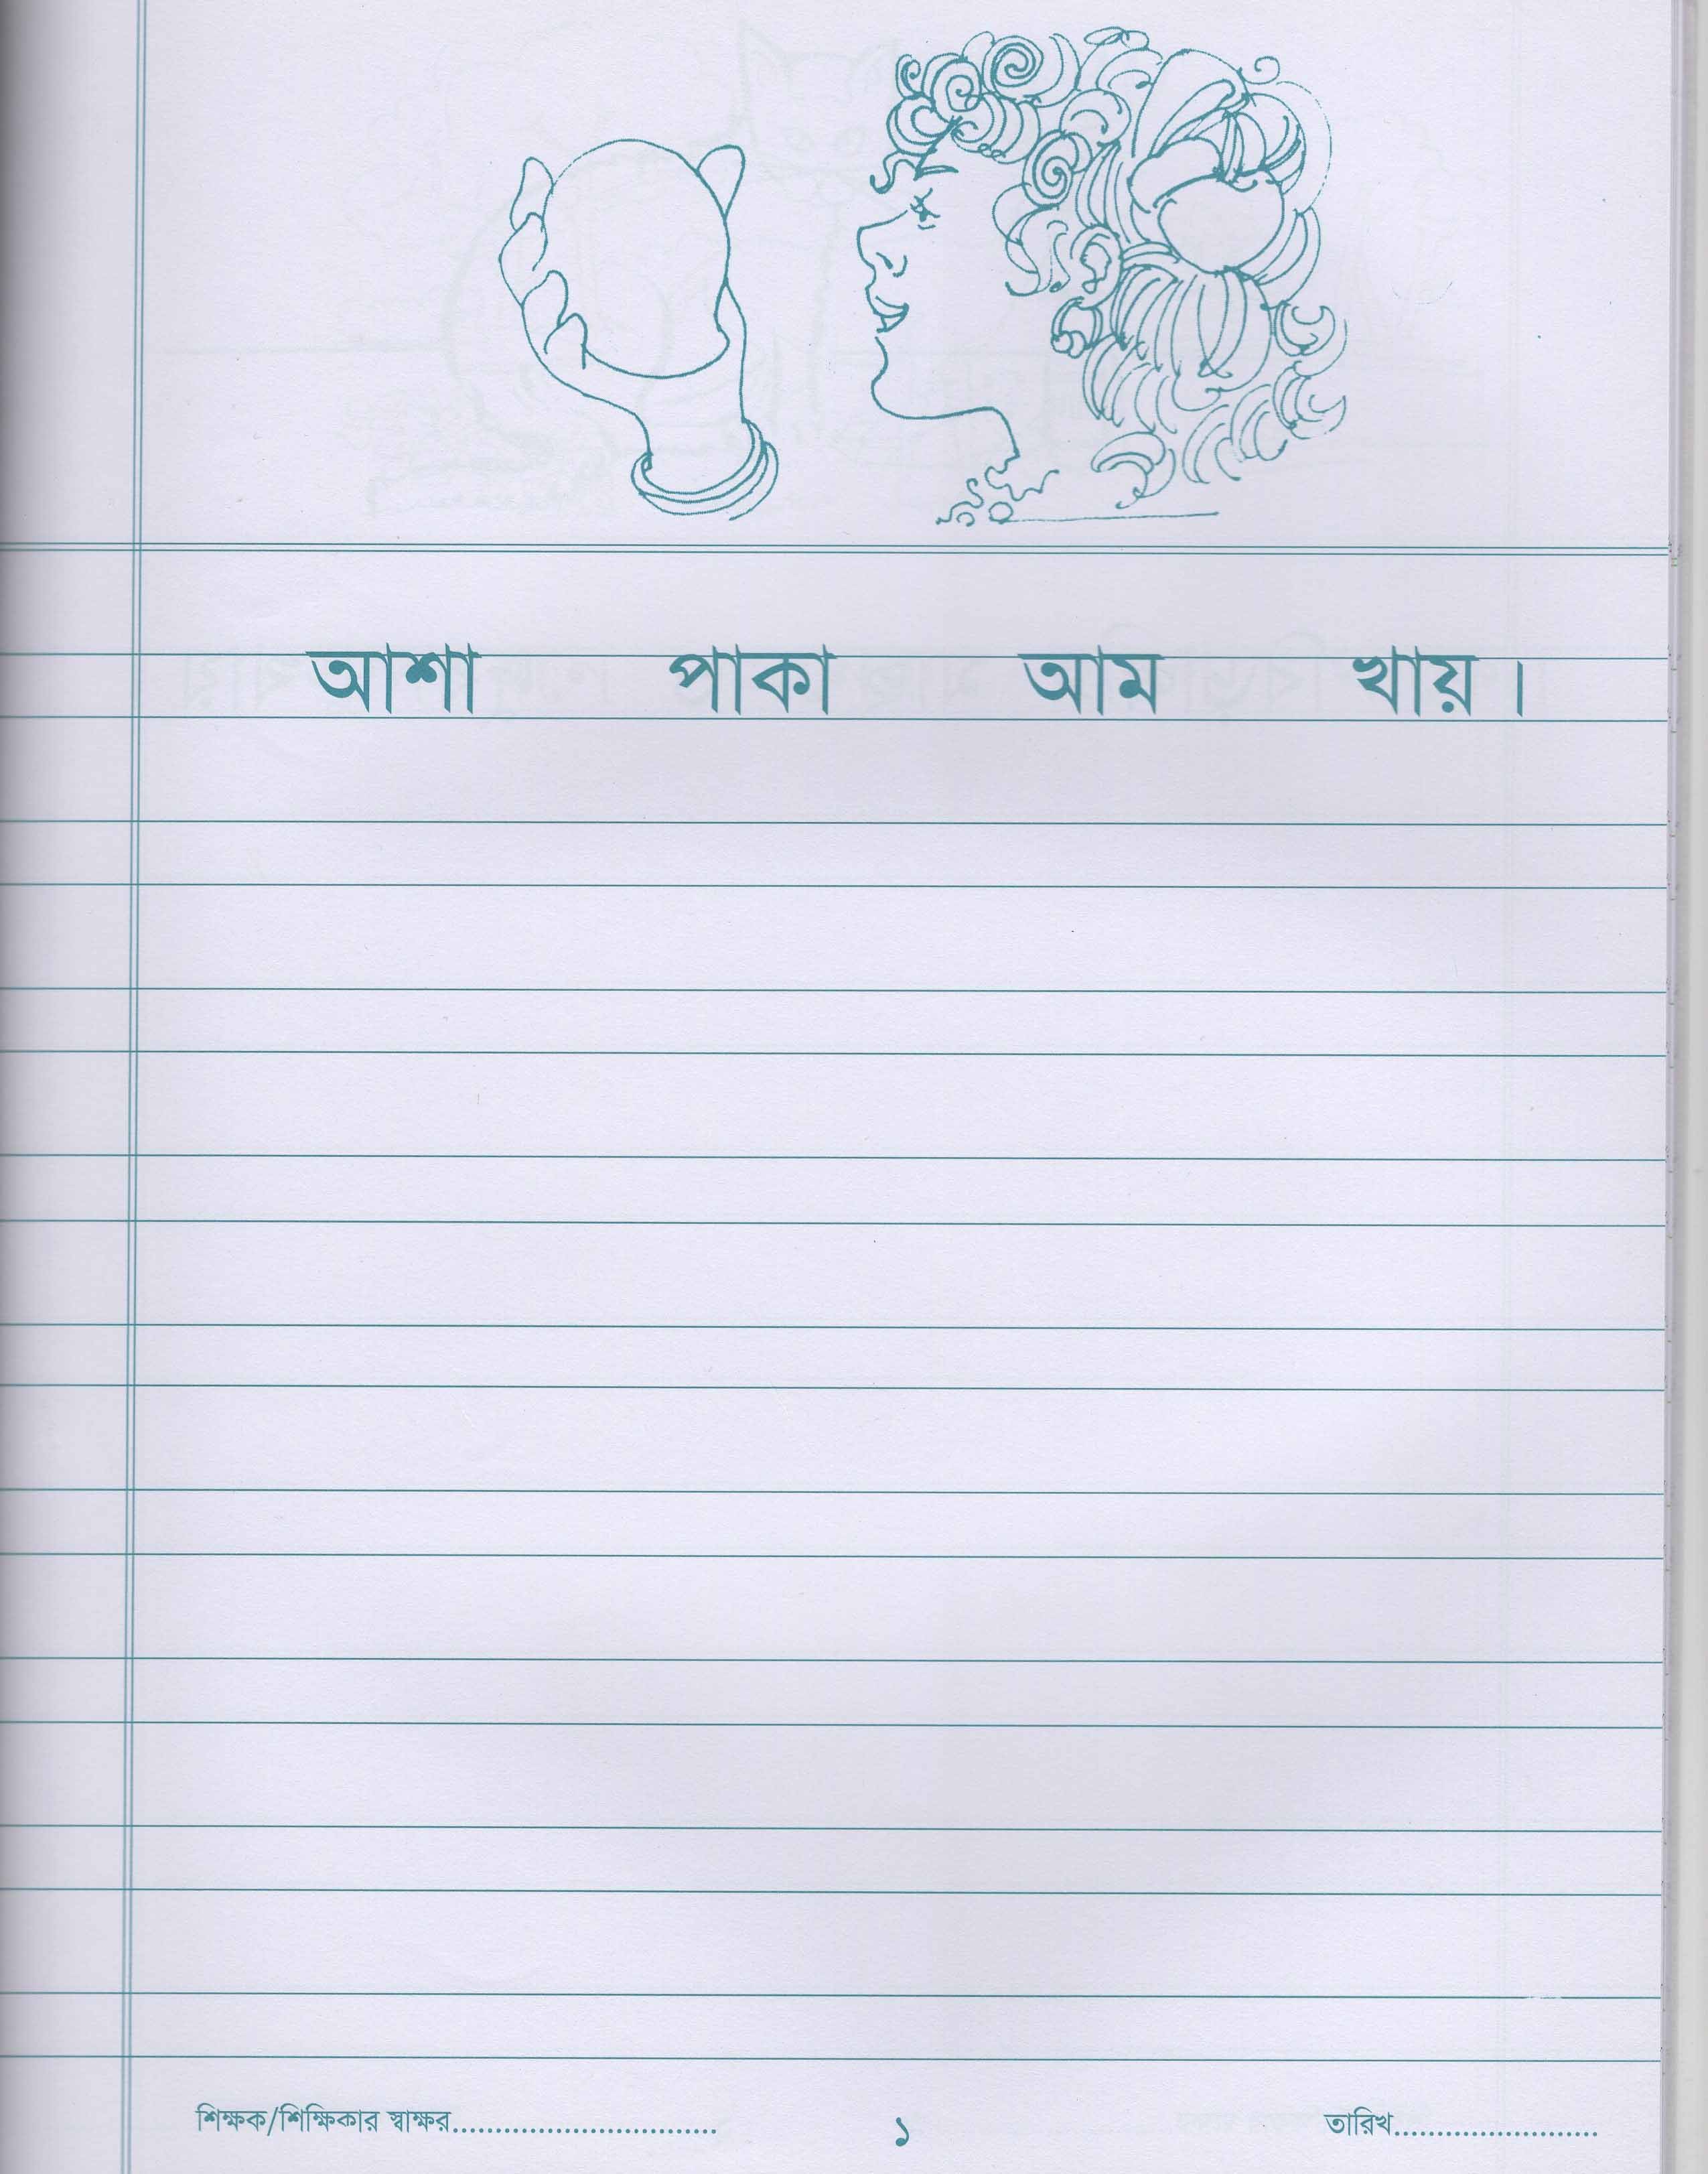 আশা পাকা আম খায় ।
শিক্ষক/শিক্ষিকার স্বাক্ষর............................... ১ তারিখ........................